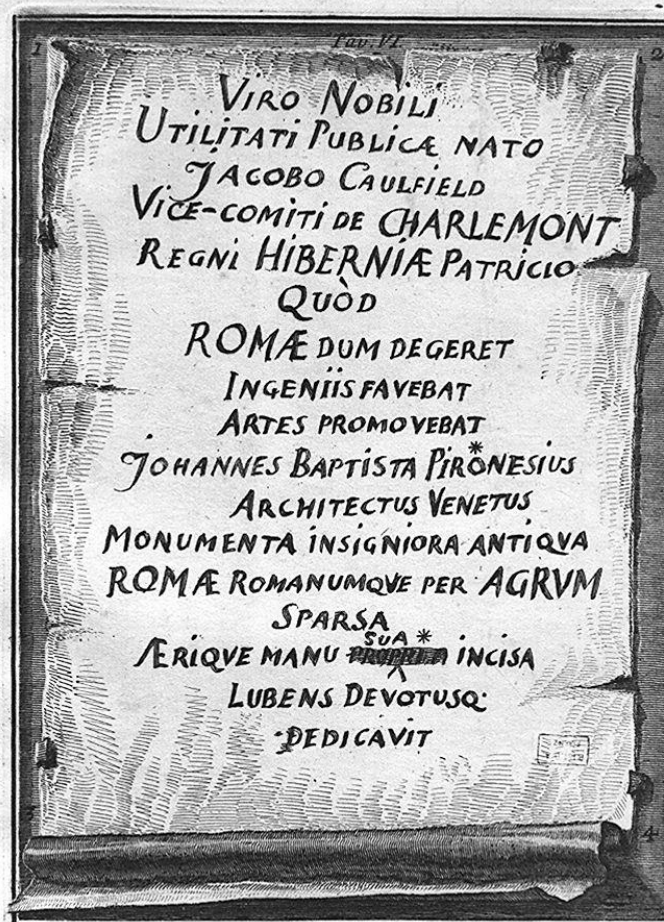 Tav. VI
1
2
VIRO NOBILI
UTILITATI PUBLICÆ NATO
JACOBO CAULFIELD
VICE-COMITI DE CHARLEMONT
REGNI HIBERNIÆ PATRICIO
QUÒD
ROMÆ DUM DEGERET
INGENIIS FAVEBAT
ARTES PROMOVEBAT
JOHANNES BAPTISTA PIRONESIUS
*
ARCHITECTUS VENETUS
MONUMENTA INSIGNIORA ANTIQVA
ROMÆ ROMANUMQVE PER AGRVM
SPARSA
SUA *
ÆRIQVE MANU PROPRIA INCISA
LUBENS DEVOTUSQ:
DEDICAVIT
3
4